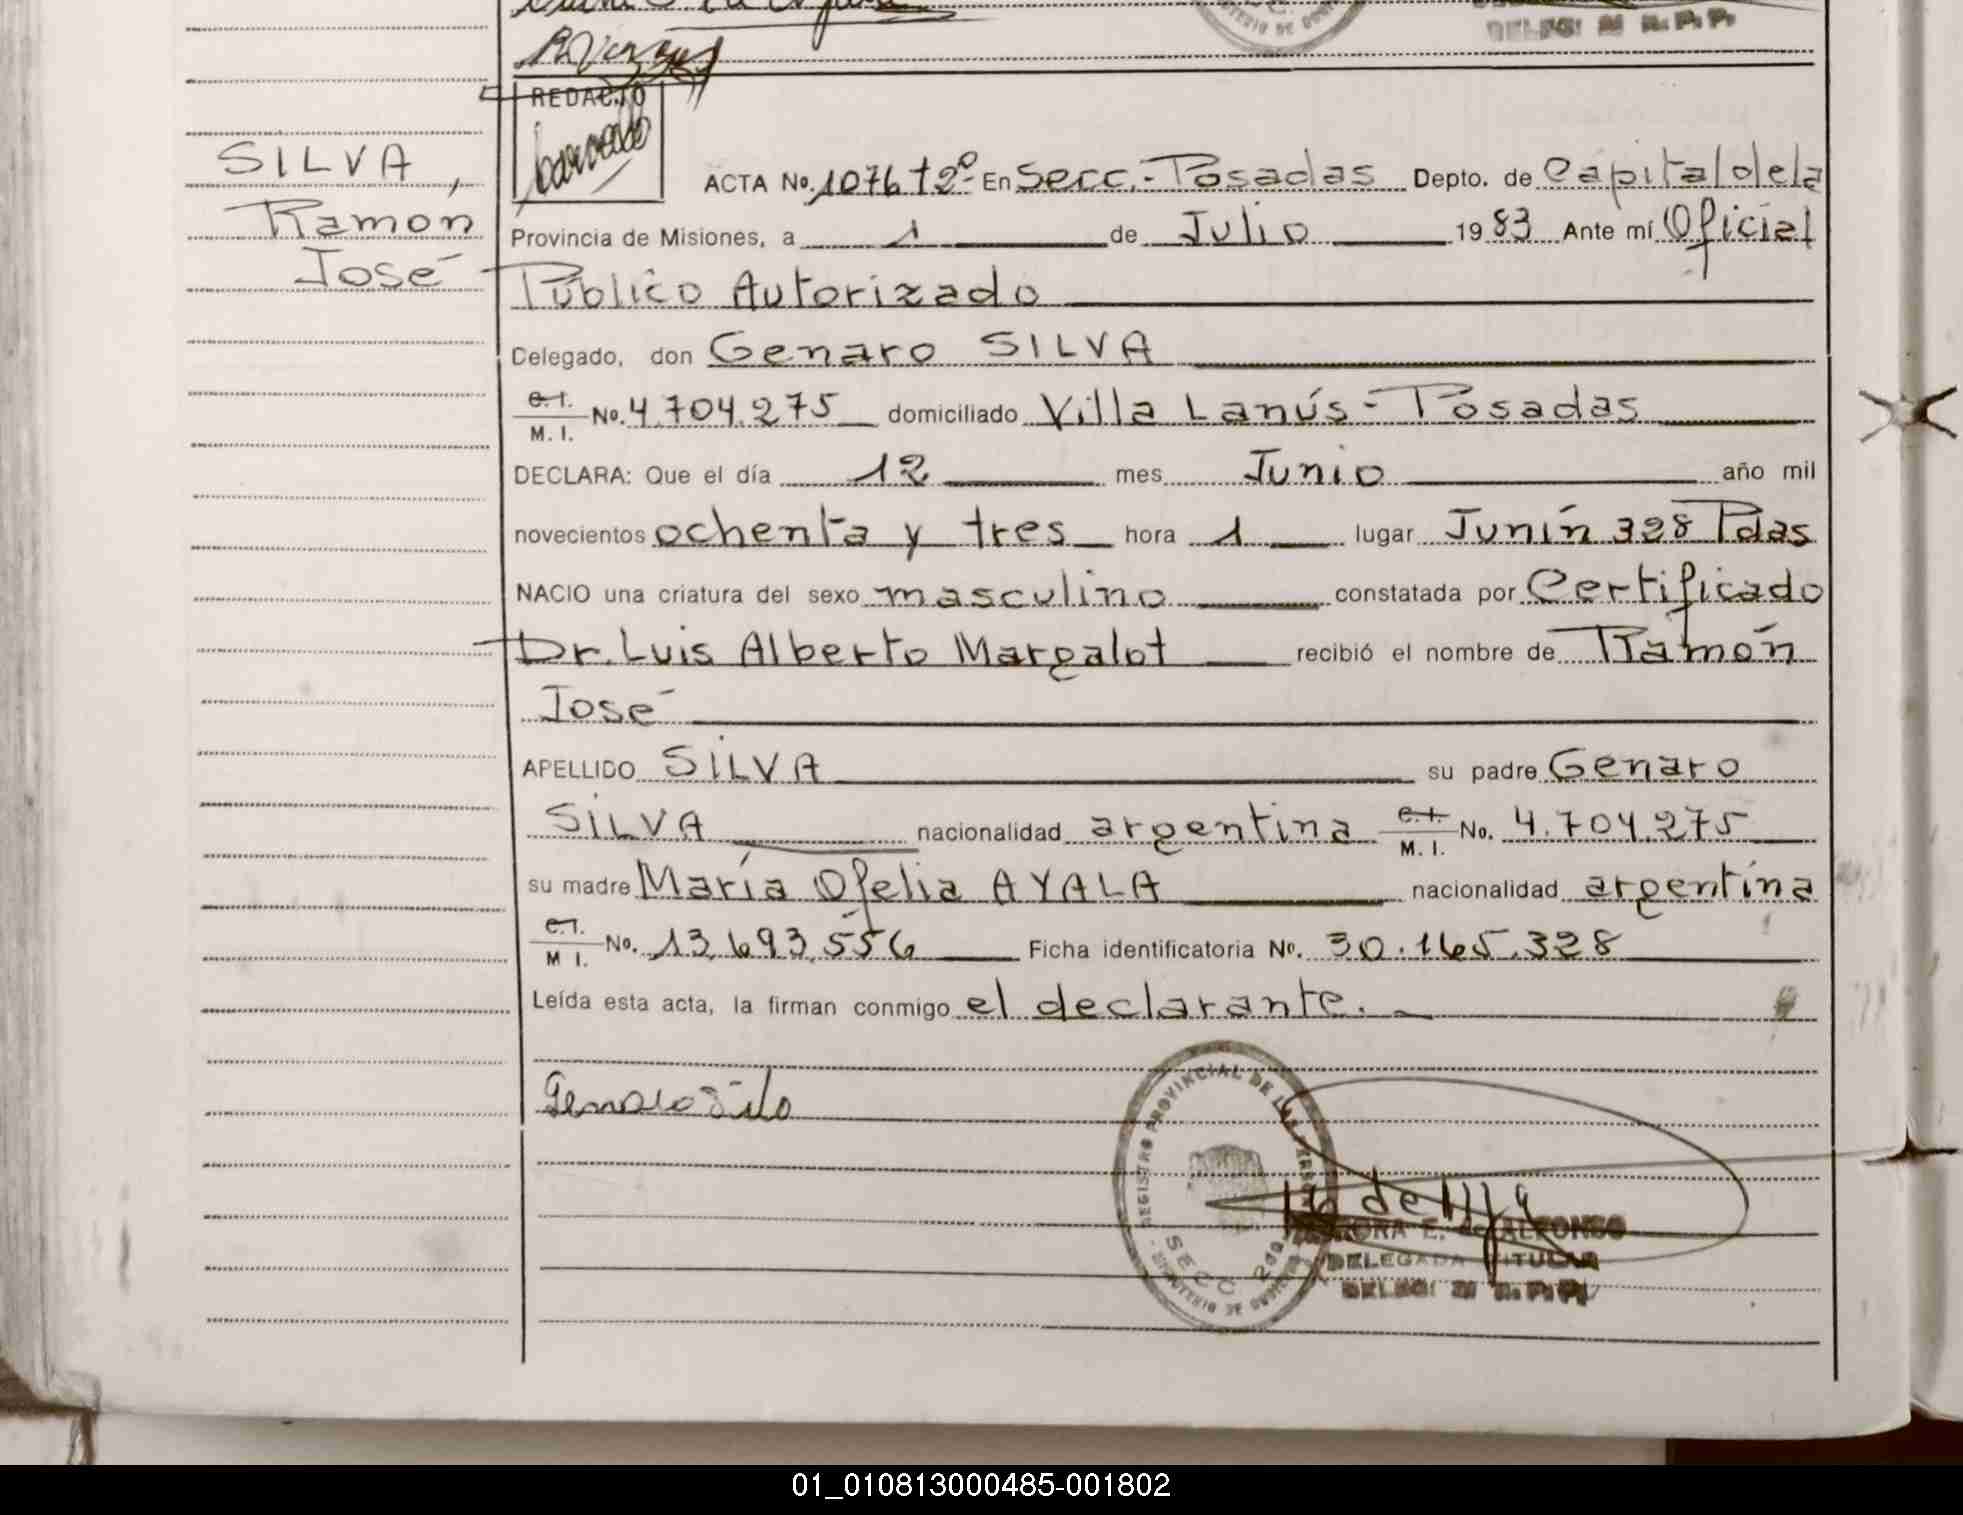 DELEG: M R. P. P.
REDACTO
SILVA,
Ramón
José
ACTA No. 1076 tº2º En Secc.- Posadas Depto. de Capital de la
Provincia de Misiones, a 1 de Julio 1983 Ante mí Oficial
Público Autorizado
Delegado, don Genaro SILVA
C.I. / M. I. No. 4.704.275 domiciliado Villa Lanús - Posadas
DECLARA: Que el día 12 mes Junio año mil
novecientos ochenta y tres hora 1 lugar Junín 328 Pdas
NACIO una criatura del sexo masculino constatada por Certificado
Dr. Luis Alberto Margalot recibió el nombre de Ramón
José
APELLIDO SILVA su padre Genaro
SILVA nacionalidad argentina C.I. / M. I. No. 4.704.275
su madre María Ofelia AYALA nacionalidad argentina
C.I. / M I. No. 13.693.556 Ficha identificatoria No. 30.165.328
Leída esta acta, la firman conmigo el declarante.
Genaro Silva
REGISTRO PROVINCIAL DE LAS PERSONAS
SECC 2da
MINISTERIO DE GOBIERNO
E. de ALFONSO
DELEGADA TITULAR
DELEG: M R. P. P.
01_010813000485-001802